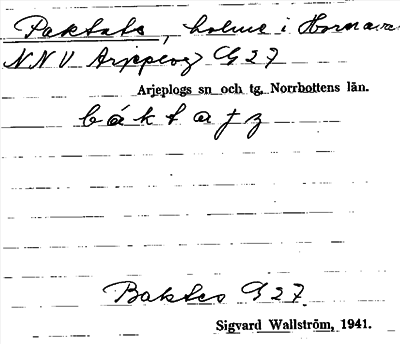 Paktats, holme i Hornavan
NNV Arjeplog G 27
Arjeplogs sn och tg, Norrbottens län.
báktatz
Baktes G 27.
Sigvard Wallström, 1941.